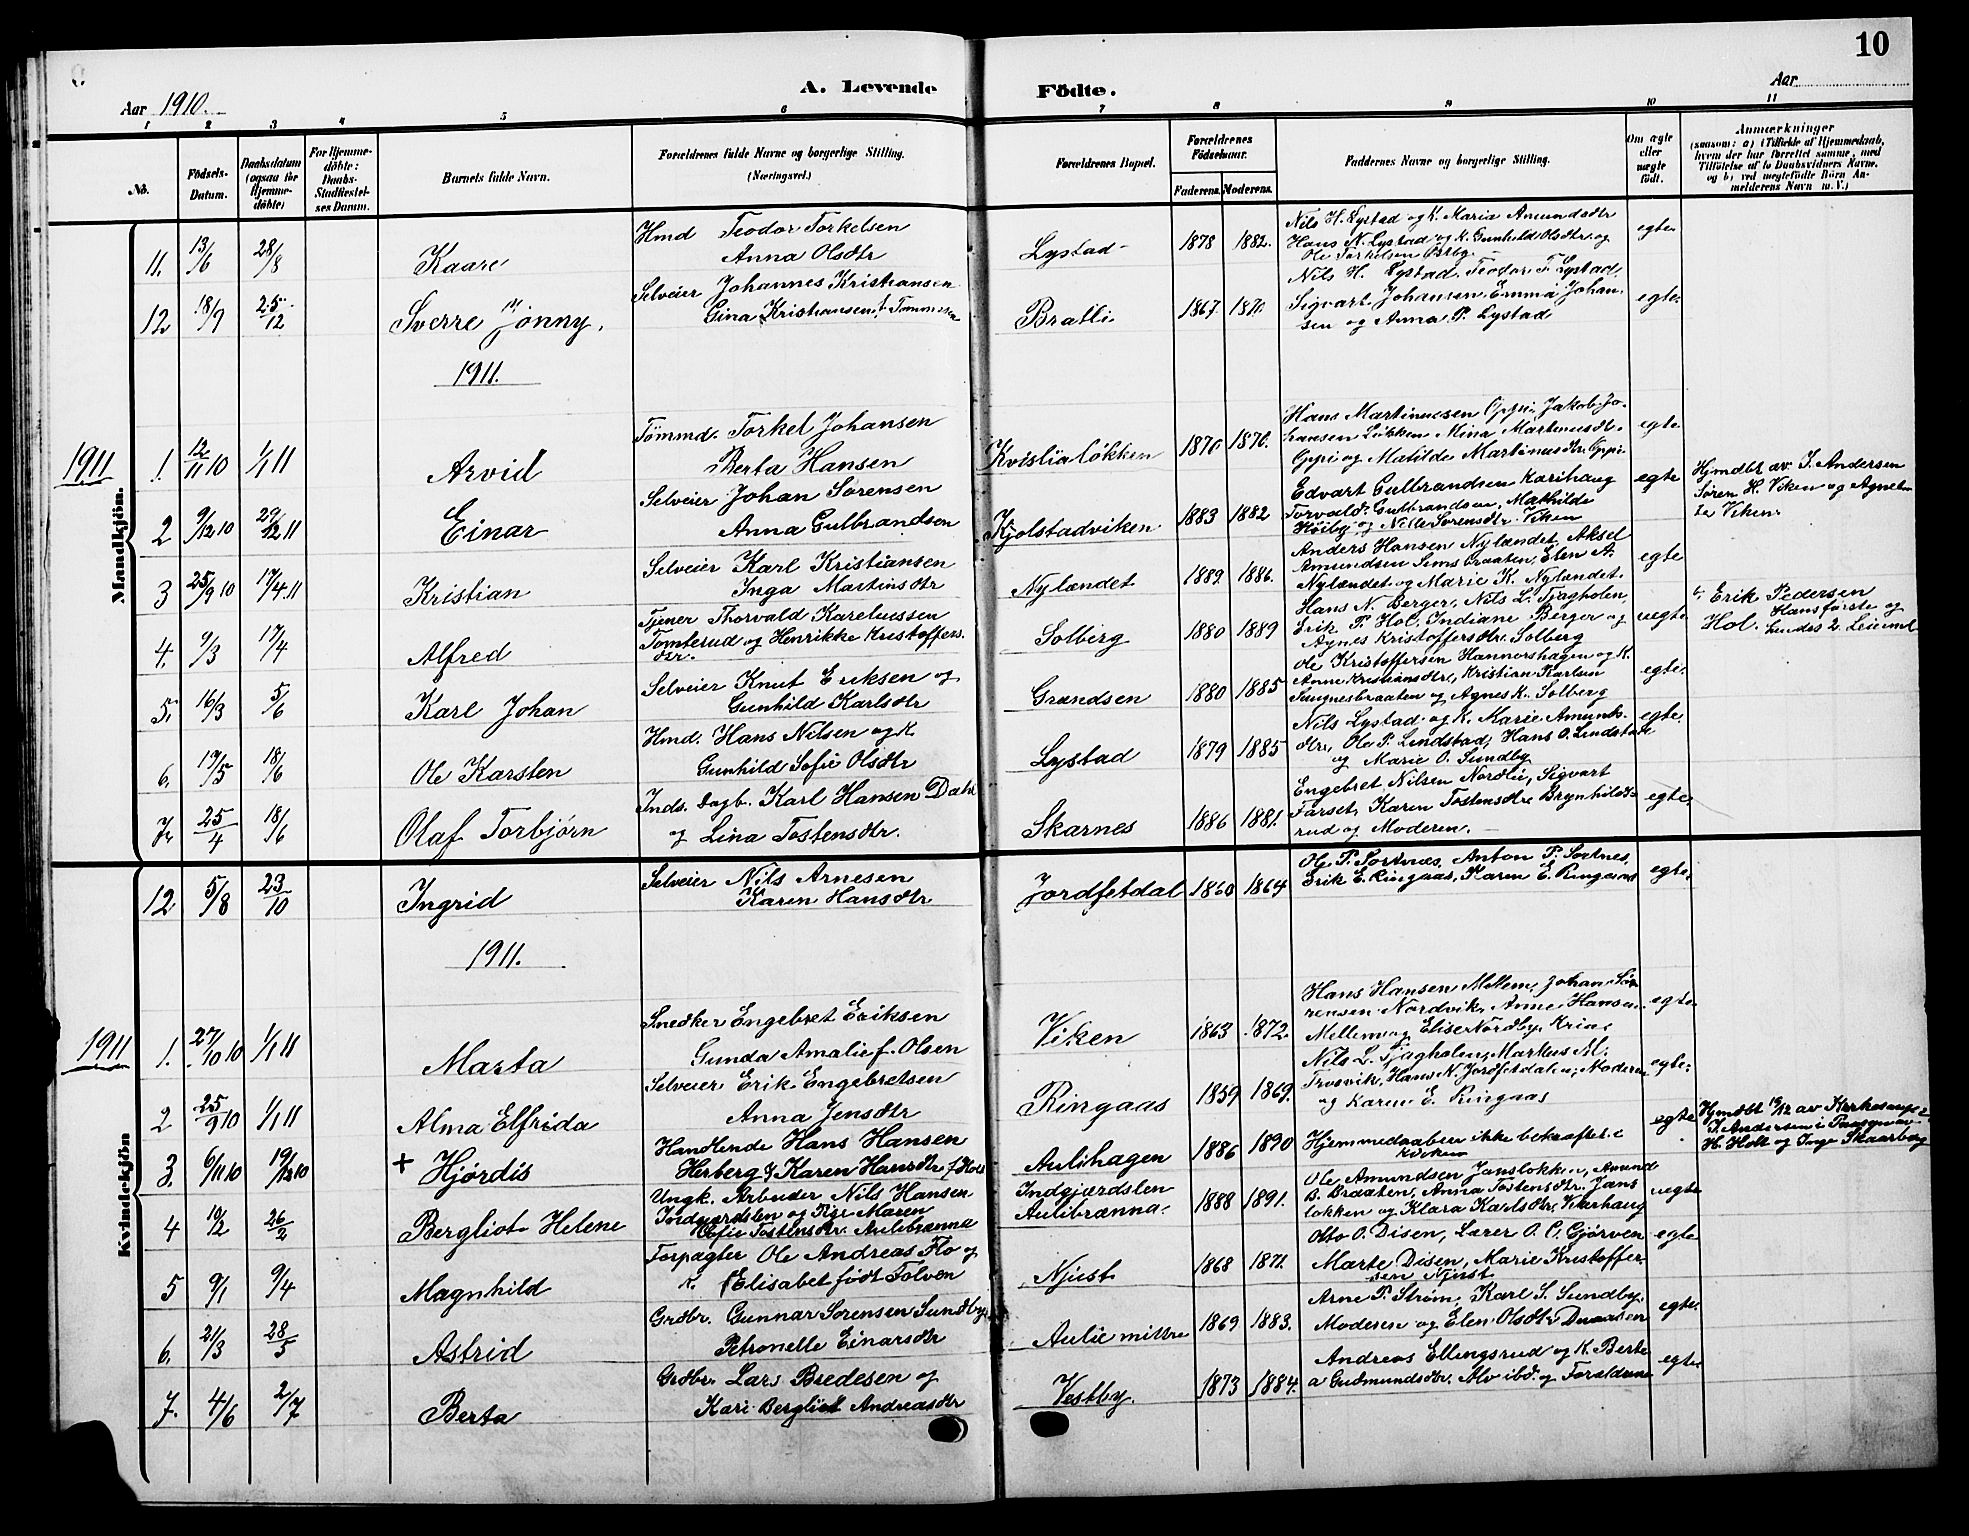 10
A. Levende Födte.
Aar 1910.
Aar
1 2 3 4 5 6 7 8 9 10 11
No.
Födsels-Datum.
Daabsdatum (ogsaa for Hjemme-döbte)
For Hjemme-döbte: Daabs-Stadfæstel-ses Datum.
Barnets fulde Navn.
Forældrenes fulde Navne og borgerlige Stilling. (Næringsvei.)
Forældrenes Bopæl.
Forældrenes Födselsaar.
Faderens. Moderens.
Faddernes Navne og borgerlige Stilling.
Om ægte eller uægte födt.
Anmærkninger
(saasom: a) i Tilfælde af Hjemmedaab, hvem der har forrettet samme, med Tilföielse af to Daabsvidners Navne, og b) ved uægtefödte Börn An-melderens Navn m. V.)
11. 13/6 28/8 Kaare
Hmd Teodor Torkelsen
Anna Olsdtr
Lystad 1878 1882.
Nils H. Lystad og K. Maria Amundsdtr
Hans N. Lystad og K. Gunhild Olsdtr og
Ole Torkelsen Østby
egte
12 18/9 25/12 Sverre Jonny.
Selveier Johannes Kristiansen
Gina Kristiansen f. Tømmesen
Bratli 1867. 1870.
Nils H. Lystad. Teodor T. Lystad.
Sigvart Johansen, Emma Johan-
sen og Anna P. Lystad
egte
1911.
1911
Mandkjön.
1. 12/11 10 1/1 11 Arvid
Tömmd. Torkel Johansen
Berta Hansen
Kvislialökken 1870 1870.
Hans Martinussen Oppi, Jakob Jo-
hansen Lökken Mina Martinusdtr.
Oppi og Matilde Martinusdtr Oppi
egte
2 9/12 10 29/12 11 Einar
Selveier Johan Sörensen
Anna Gulbrandsen
Kjolstadviken 1883 1882
Edvart Gulbrandsen Karihaug
Torvald Gulbrandsen, Mathilde
Höiby og Nille Sörensdtr. Viken
egte
Hjmdbt av I. Andersen
Søren H. Viken og Agnet-
te Viken.
3 25/9 10 17/4.11 Kristian
Selveier Karl Kristiansen
Inga Martinsdtr
Nylændet 1889. 1886.
Anders Hansen Nylændet, Aksel
Amundsen Simsbraaten, Elen A.
Nylændet og Marie K. Nylændet.
egte
4. 9/3 17/4 Alfred
Tjener Thorvald Kareliussen
Tomterud og Henrikke Kristoffers-
dtr.
Solberg 1880 1889
Hans N. Berger, Nils L. Tjagholen,
Erik P. Hol, Indiane Berger og
Agnes Kristoffersdtr. Solberg
uegte
Erik Pedersen
Hol. Hans første og
hendes 2. Leierml
5. 16/3 5/6 Karl Johan
Selveier Knut Eriksen og
Gunhild Karlsdtr
Grændsen 1880 1885
Ole Kristoffersen Hannershagen og K.
Anne Kristiansdtr, Kristian Karlsen
Sugnesbraaten og Agnes K. Solberg
egte.
6. 17/5 18/6 Ole Karsten
Hmd. Hans Nilsen og K
Gunhild Sofie Olsdtr
Lystad 1879 1885
Nils Lystad og K. Marie Amunds-
dtr, Ole P. Lindstad, Hans O. Lindstad
og Marie O. Sundby
egte.
7. 25/4 18/6 Olaf Torbjørn
Inds. dagb. Karl Hansen Dahl
og Lina Tostensdtr.
Skarnes 1886 1881.
Engebret Nilsen Nordli, Sigvart
Farset, Karen Tostensdtr Brynhilds-
rud og Moderen.
egte
Kvindekjön
12 5/8 23/10 Ingrid
Selveier Nils Arnesen
Karen Hansdtr
Jordfetdal 1860 1864
Ole P. Sortnæs, Anton P. Sortnes.
Erik E. Ringaas, Karen E. Ringaas
egte.
1911.
1911
1. 27/10 10 1/1 11 Marta
Snedker Engebret Eriksen
Gunda Amalie f. Olsen
Viken 1863 1872.
Hans Hansen Mellem, Johan Sø-
rensen Nordvik, Anne Hansen
Mellem og Elise Nordby, Krinc
egte
2 25/9 10 1/1 11 Alma Elfrida
Selveier Erik Engebretsen
Anna Jensdtr
Ringaas 1859 1869.
Nils L. Tjagholen, Markus M.
Trosvik, Hans N. Jordfetdalen, Moderen
og Karen E. Ringaas
egte.
3. 6/11 10 19/12 10 + Hjørdis
Handlende Hans Hansen
Herberg & Karen Hansdtr f. Hol
Aulihagen 1886 1890
Hjemmedaaben ikke bekræftet i
Kirken
egte
Hjmdbt 19/12 av Kirkesanger
I. Andersen i Paasyn av
H. Holt og Inga Skaarberg
4 10/2 26/2 Bergliot Helene
Ungk. Arbeider Nils Hansen
Indgjærdslen og Pige Maren
Sofie Tostensdtr. Aulibrænna
Indgjærdslen
Aulibrænna. 1888 1891.
Ole Amundsen Janslokken, Amund
B. Braaten, Anna Tostensdtr. Jans
lokken og Klara Karlsdtr. Vikerhaug
uegte
5 9/1 9/4 Magnhild
Forpagter Ole Andreas Flo og
K. Elisabet födt Folven
Njust 1868 1871.
Otto O. Disen, Lærer O. C. Gjörven
Marte Disen, Marie Kristoffer-
sen Njust
egte
6. 21/3 28/5 Astrid
Grdbr. Gunnar Sörensen Sundby,
Petronelle Einarsdtr
Aulie mittre 1869 1883.
Arne P. Ström, Karl S. Sundby,
Moderen og Elen Olsdtr
egte.
7. 4/6 2/7 Berta
Grdbr. Lars Bredesen og
Kari Bergliot Andreasdtr
Vestby. 1873 1884.
Andreas Ellingsrud og K. Berte
a Gudmundsdtr. Alv ibd. og Forældrene
egte